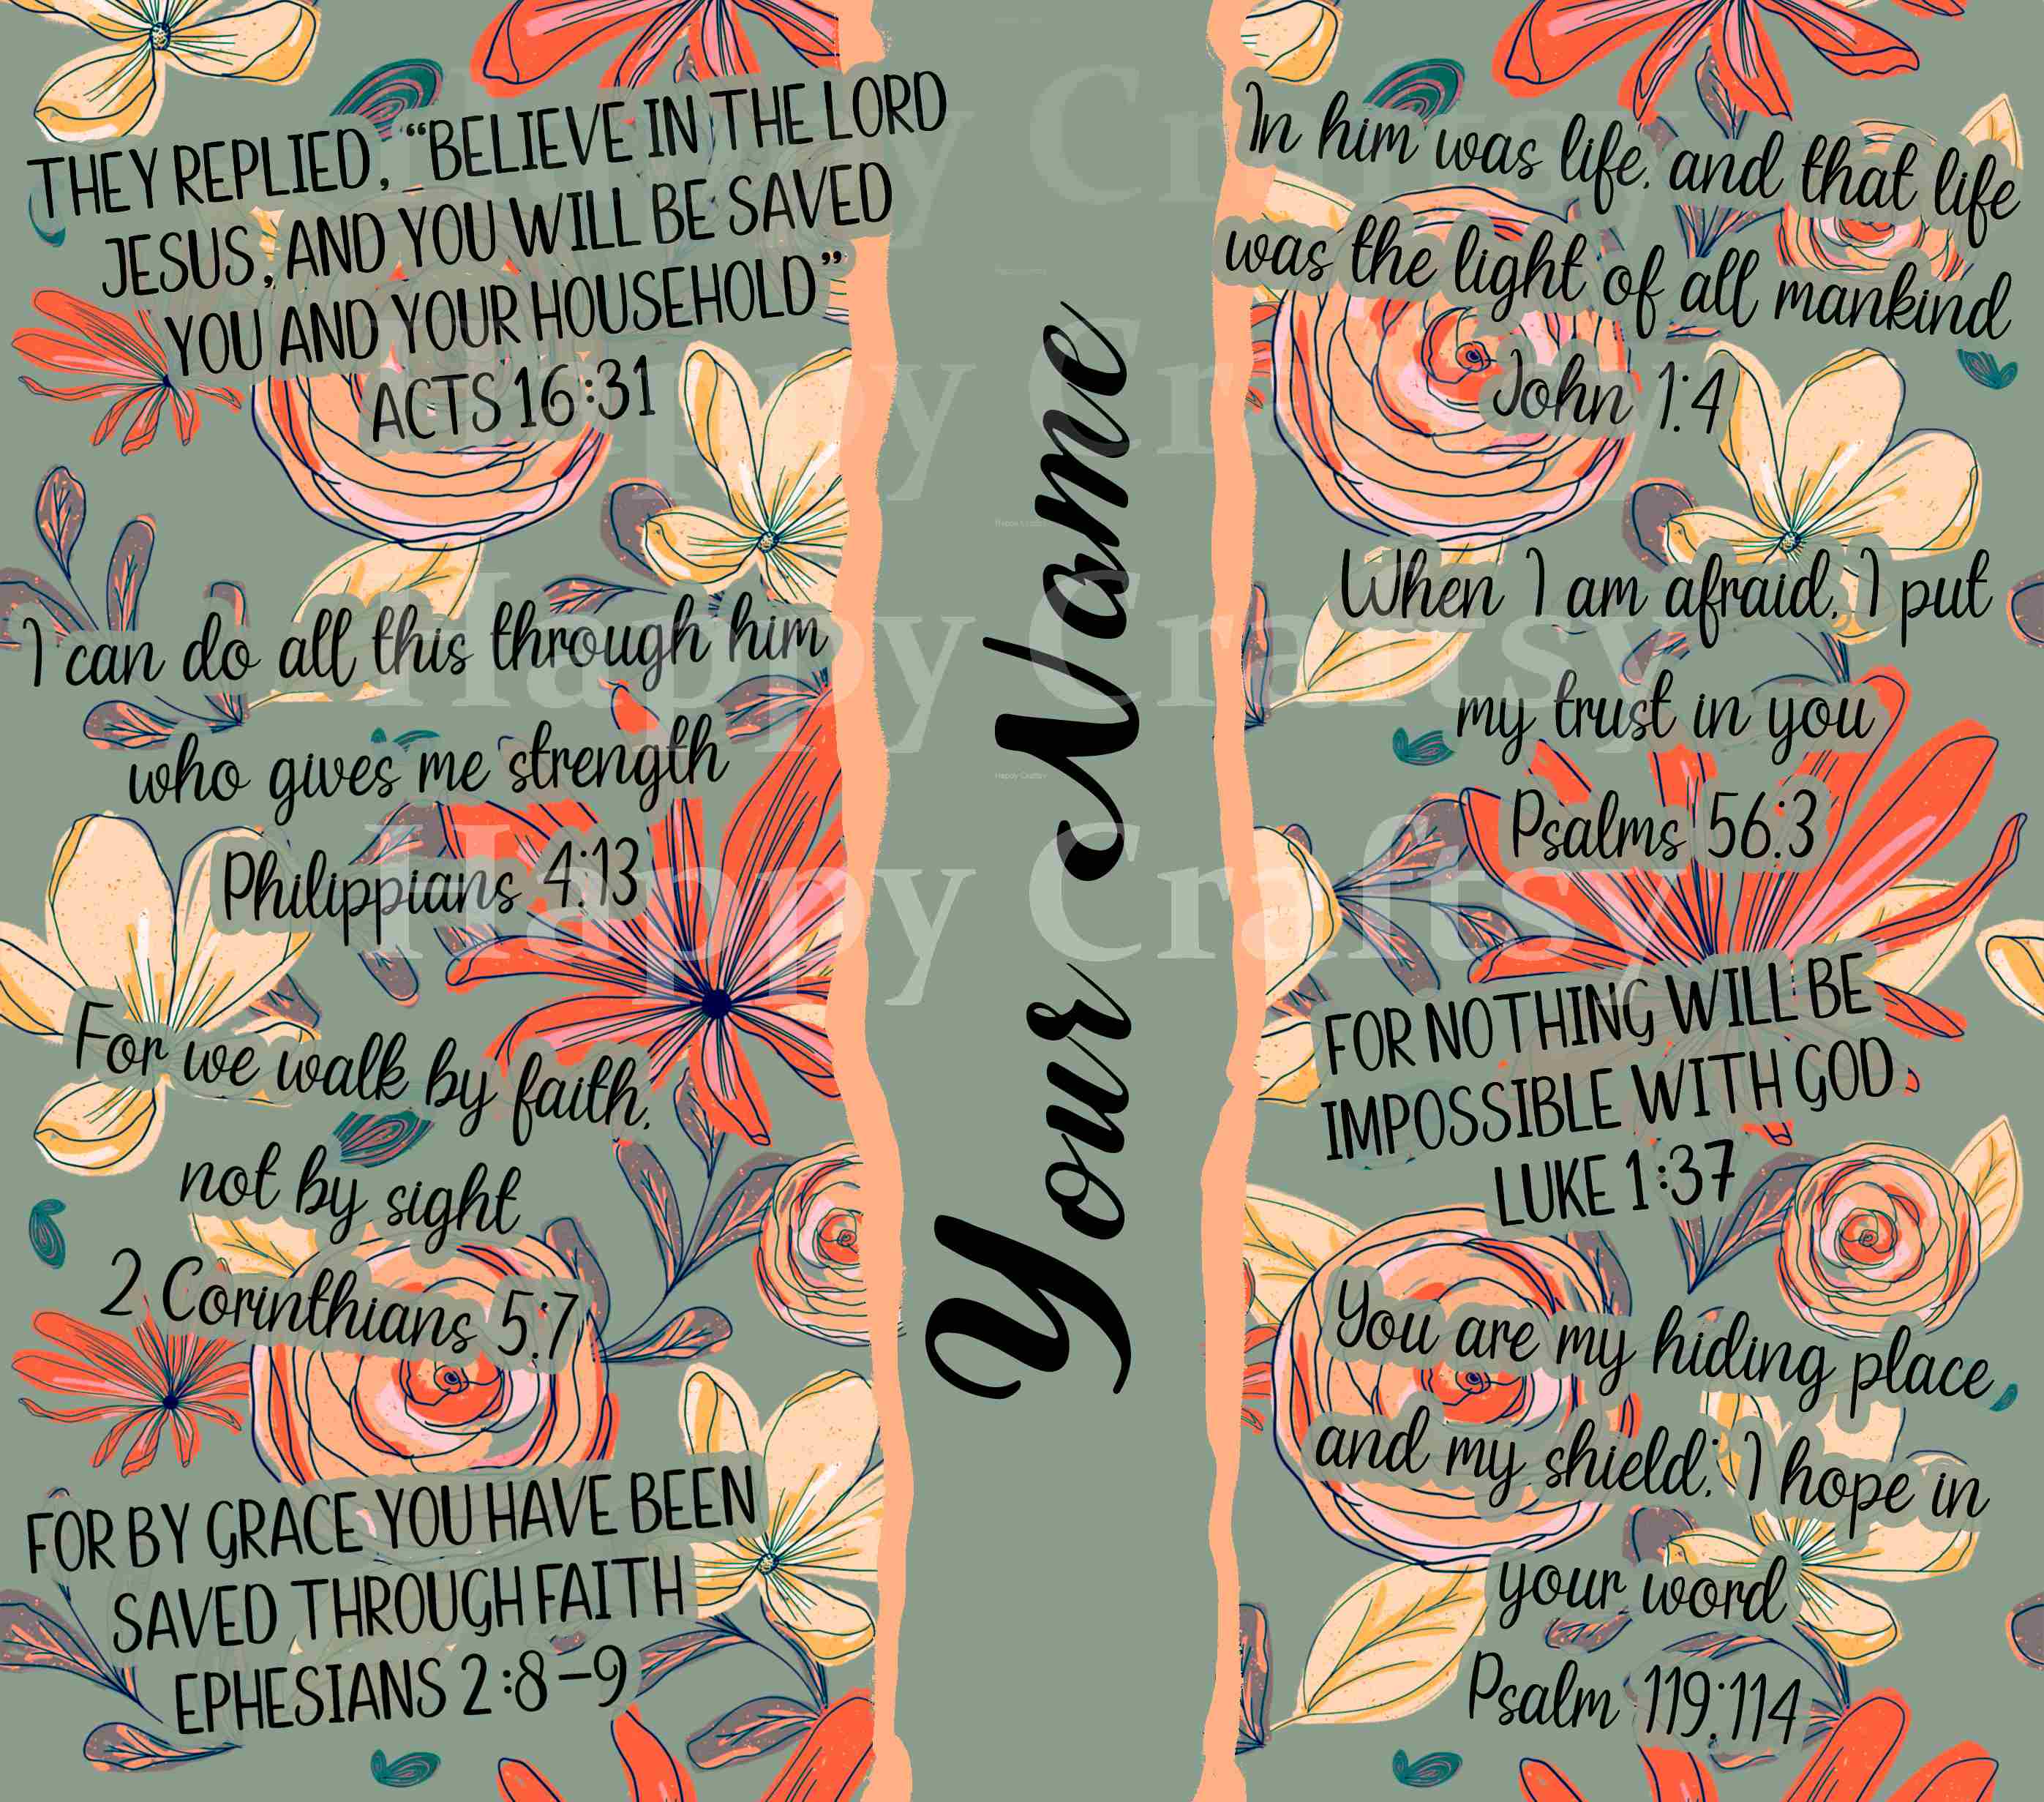 THEY REPLIED, “BELIEVE IN THE LORD
JESUS, AND YOU WILL BE SAVED
YOU AND YOUR HOUSEHOLD”
ACTS 16:31
I can do all this through him
who gives me strength
Philippians 4:13
For we walk by faith,
not by sight
2 Corinthians 5:7
FOR BY GRACE YOU HAVE BEEN
SAVED THROUGH FAITH
EPHESIANS 2:8-9
Your Name
In him was life, and that life
was the light of all mankind
John 1:4
When I am afraid, I put
my trust in you
Psalms 56:3
FOR NOTHING WILL BE
IMPOSSIBLE WITH GOD
LUKE 1:37
You are my hiding place
and my shield; I hope in
your word
Psalm 119:114
Happy Craftsy
Happy Craftsy
Happy Craftsy
Happy Craftsy
Happy Craftsy
Happy Craftsy